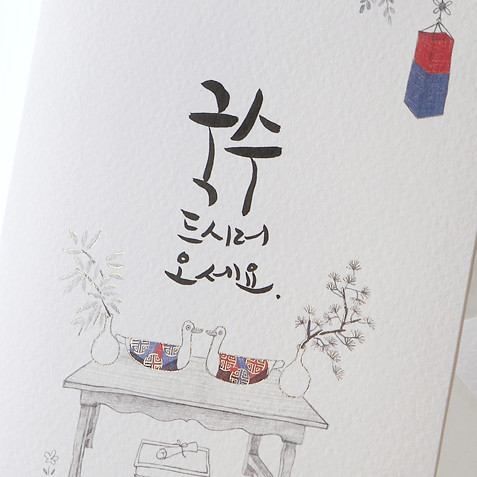 국수
드시러
오세요.